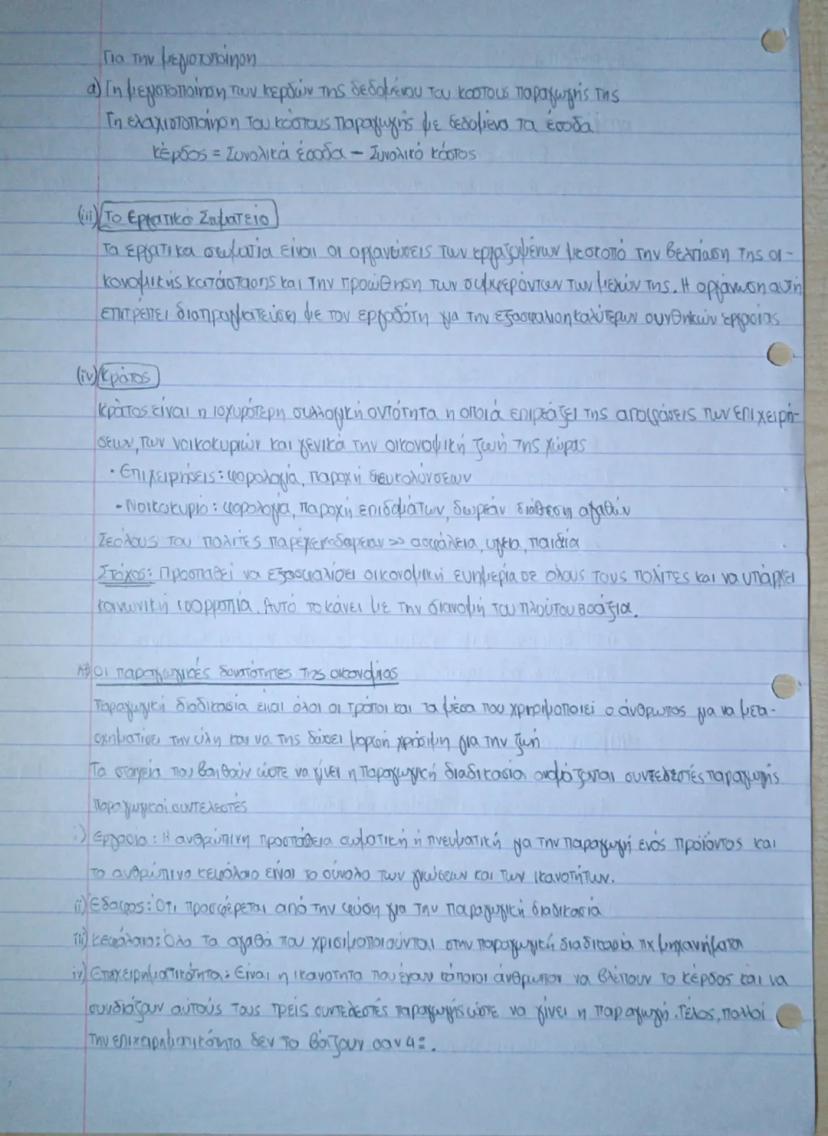 Για την μεγιστοποίηση
α) Τη μεγιστοποίηση των κερδών της δεδομένου του κόστους παραγωγής της
Τη ελαχιστοποίηση του κόστους παραγωγής με δεδομένα τα έσοδα
κέρδος = Συνολικά έσοδα - Συνολικό κόστος
(iii) Το Εργατικό Σωματείο
Τα εργατικα σωματία είναι οι οργανώσεις των εργαζομένων με σκοπό την βελτίαση της οι-
κονομικής κατάστασης και την προώθηση των συμφερόντων των μελών της. Η οργάνωση αυτή
επιτρέπει διαπραγματεύσει με τον εργοδότη για την εξασφαλιση καλύτερων συνθηκών εργασίας
(iv) Κράτος
Κράτος είναι η ισχυρότερη συλλογική οντότητα η οποιά επιρεάζει της αποφάσεις των επιχειρή-
σεων, των νοικοκυριών και γενικά την οικονομική ζωή της χώρας
• Επιχειρήσεις: φορολογία, παροχή διευκολύνσεων
- Νοικοκυριό: φορολογία, παροχή επιδομάτων, δωρεάν διάθεση αγαθών
Σε όλους του πολίτες παρέχει δωρεαν >> ασφάλεια, υγεια, παιδεία
Στόχος: Προσπαθεί να εξασφαλίσει οικονομική ευημερία σε ολους τους πολίτες και να υπάρχει
κοινωνική ισορροπία. Αυτό το κάνει με την διανομή του πλούτου
Οι παραγωγικές δυνατότητες της οικονομίας
Παραγωγική διαδικασία ειναι όλοι οι τρόποι και τα μέσα που χρησιμοποιεί ο άνθρωπος για να μετα-
σχηματίσει την ύλη και να της δώσει μορφή χρήσιμη για την ζωή
Τα στοιχεία που βοηθούν ώστε να γίνει η παραγωγική διαδικασία ονομάζονται συντελεστές παραγωγής
Παραγωγικοί συντελεστές
i) Εργασία: Η ανθρώπινη προσπάθεια σωματική ή πνευματική για την παραγωγή ενός προϊόντος και
το ανθρώπινο κεφάλαιο είναι το σύνολο των γνώσεων και των ικανοτήτων.
ii) Έδαφος: Ότι προσφέρεται από την φύση για την παραγωγική διαδικασία
iii) Κεφάλαιο: Όλα τα αγαθά που χρισιμοποιούνται στην παραγωγική διαδικασία πχ μηχανήματα
iv) Επιχειρηματικότητα: Είναι η ικανοτητα που έχουν κάποιοι άνθρωποι να βλέπουν το κέρδος και να
συνδιάζουν αυτούς τους τρείς συντελεστές παραγωγής ώστε να γίνει η παραγωγή. Τέλος, πολλοί
την επιχειρηματικότητα δεν το βάζουν σαν 4=.